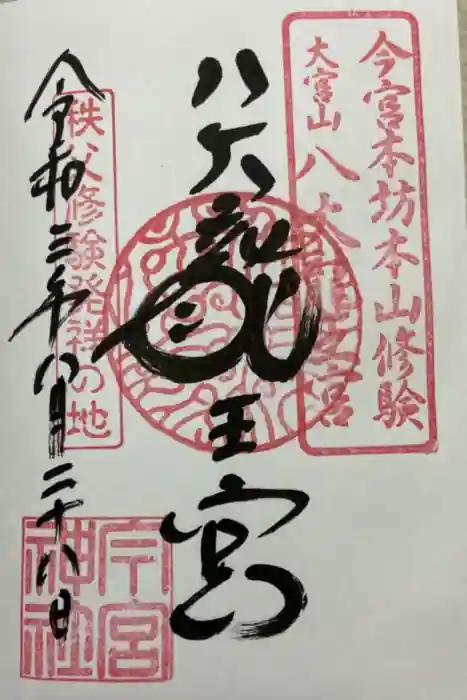 今宮本坊本山修験
大宮山 八大龍王宮
八大龍王宮
秩父修験発祥の地
令和三年八月二十八日
今宮
神社